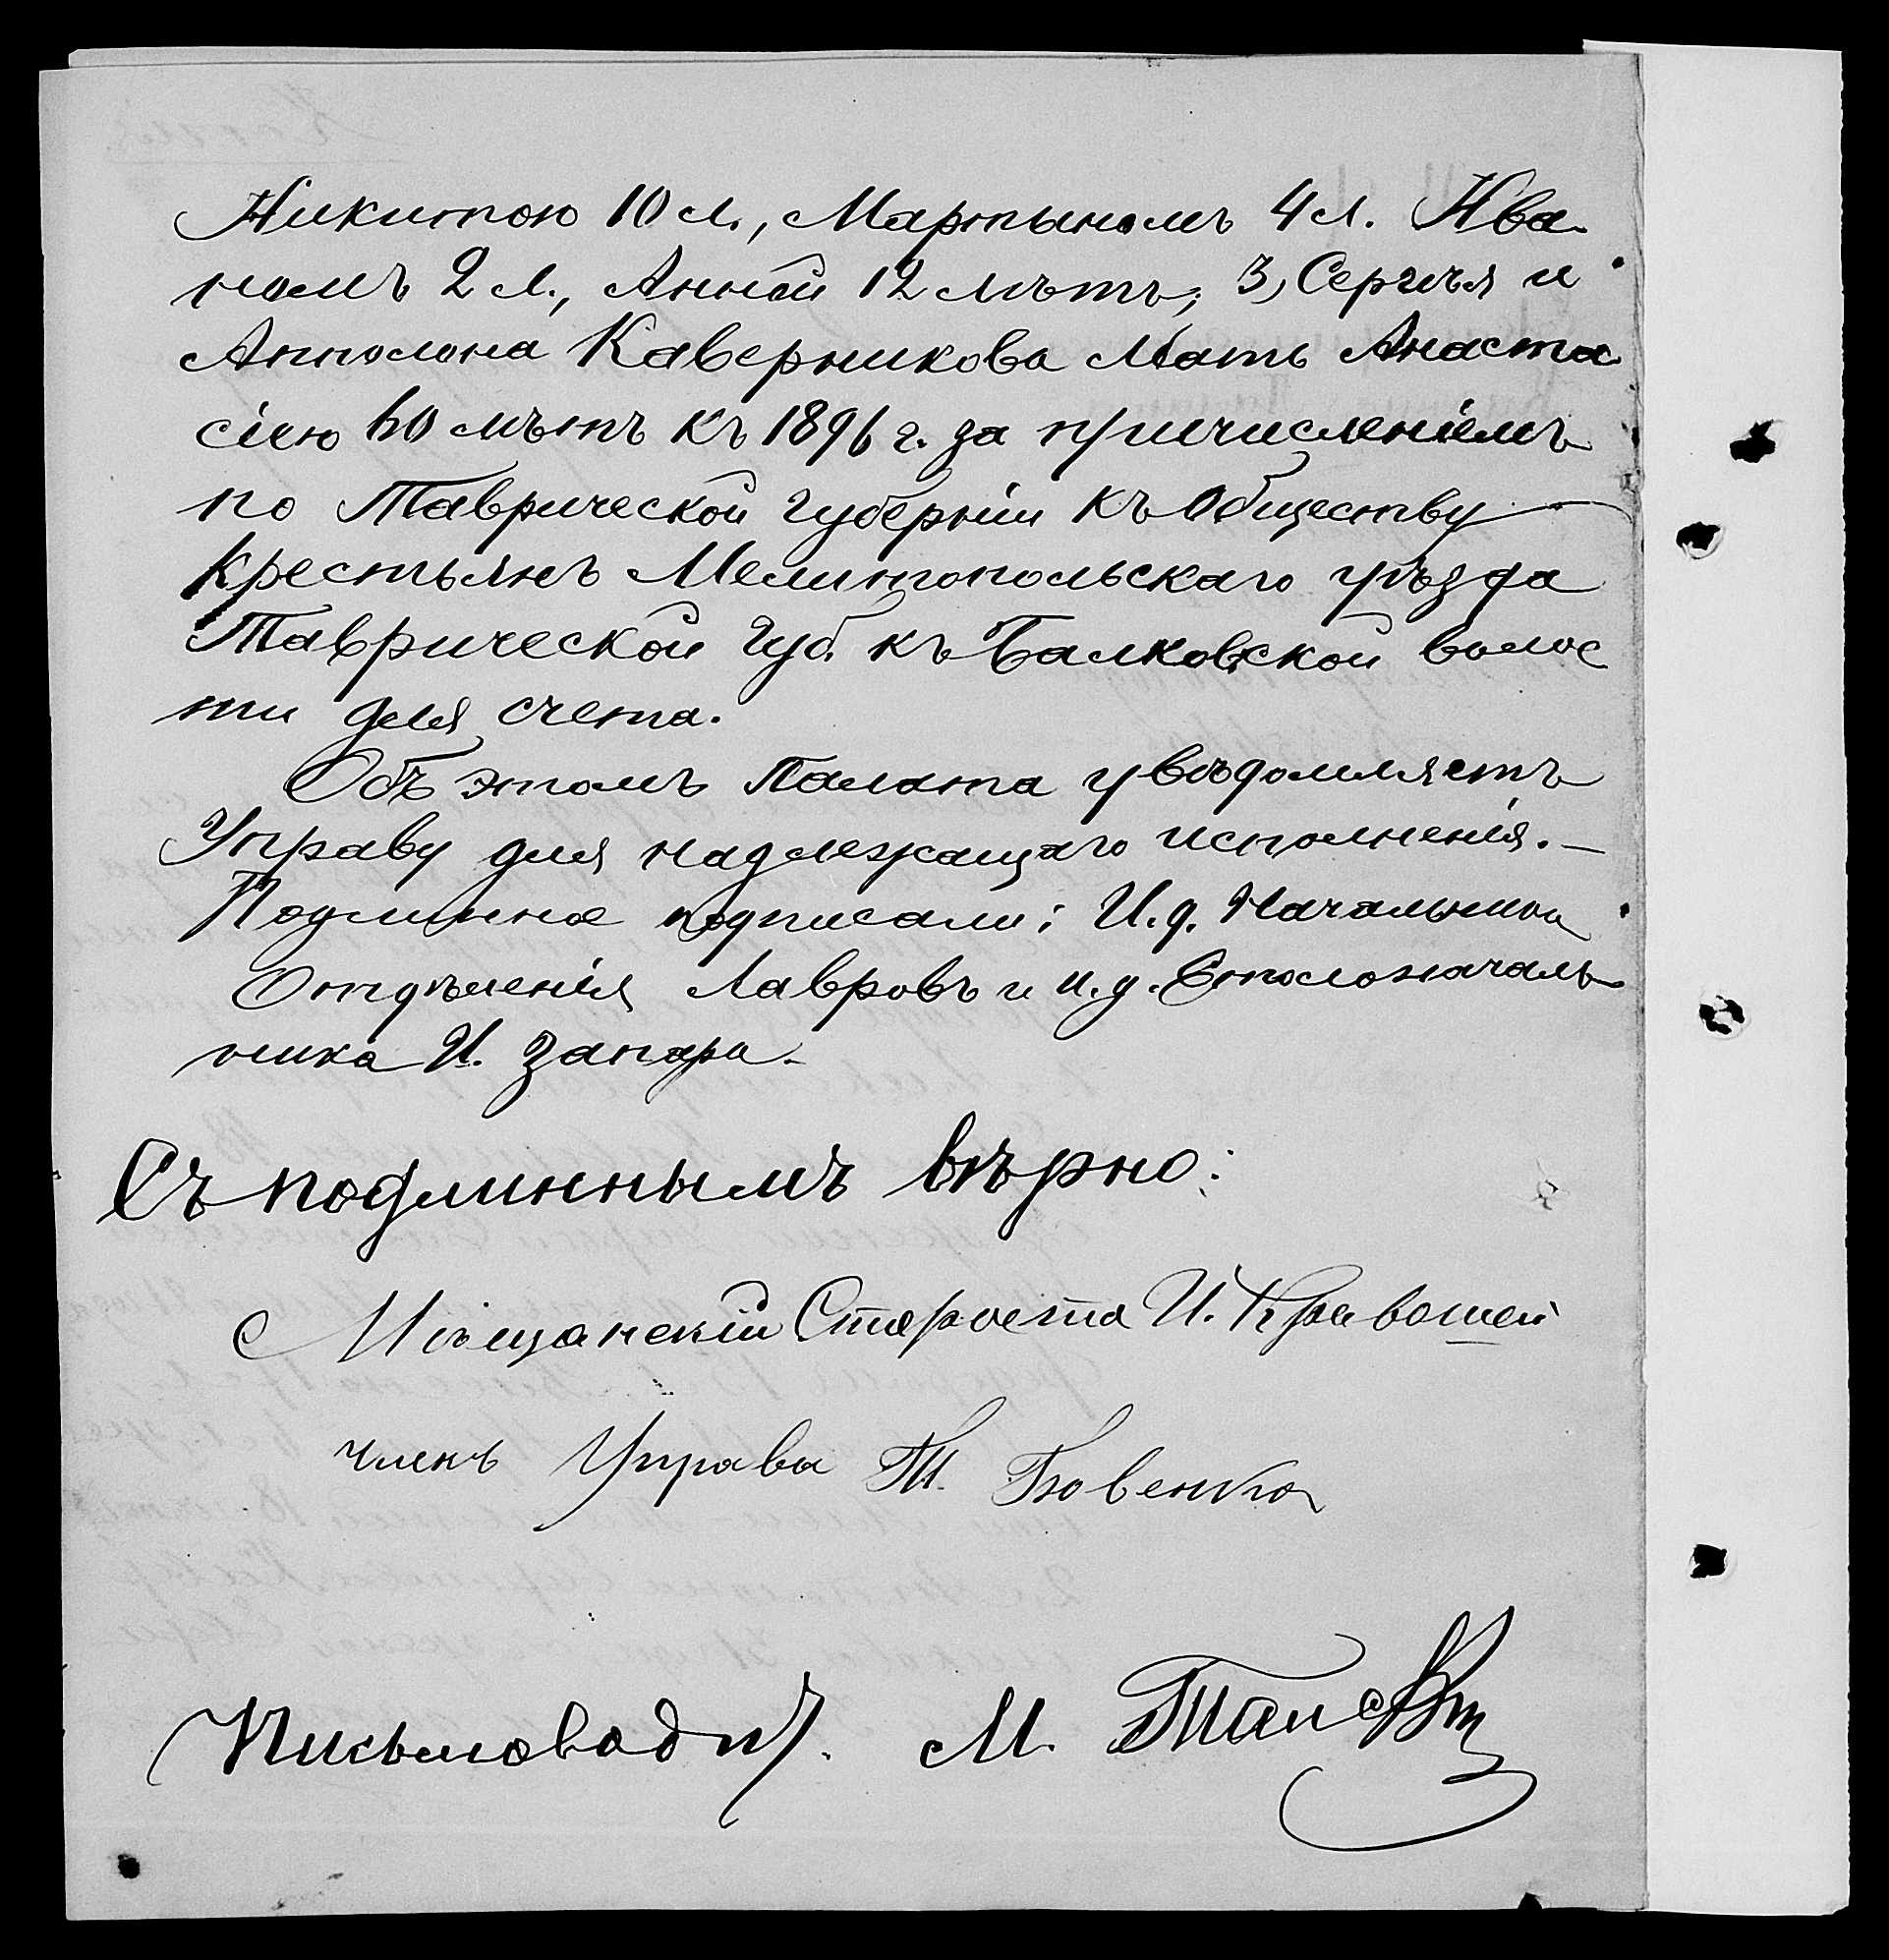 Никитою 10 л., Мартыномъ 4 л. Ива-
номъ 2 л., Анной 12 лѣтъ; 3, Сергѣя и
Апполона Каверникова Мать Анаста
сiею 60 лѣтъ къ 1896 г. за причисленiемъ
по Таврической губернiи къ Обществу
Крестьянъ Мелитопольскаго уѣзда
Таврической Губ. къ Балковской волос
ти для счета.
Объ этомъ Палата увѣдомляетъ
Управу для надлежащаго исполненiя. —
Подлинное подписали: И. д. Начальника
Отдѣленiя Лавровъ и и. д. Столоначаль-
ника И. Запара.
Съ подлиннымъ вѣрно:
Мѣщанскiй Староста И. Кривошей
членъ Управы Т. Бовенко
Письмовод М.